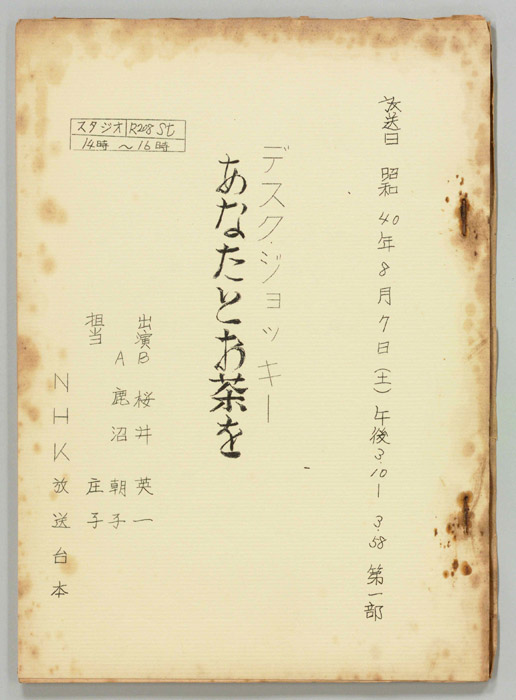 放送日 昭和40年8月7日(土)午後3.10ー3.58 第一部
デスク・ジョッキー
あなたとお茶を
スタジオ R208 St
14時 〜 16時
出演 B 桜井英一
A 鹿沼朝子
担当 庄子
NHK放送台本